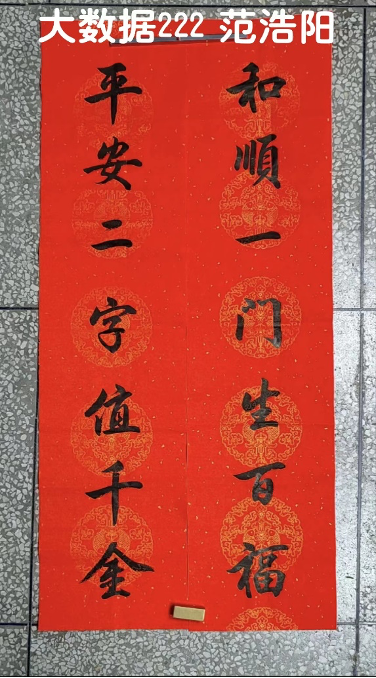 大数据222 范浩阳
和順一门生百福
平安二字值千金